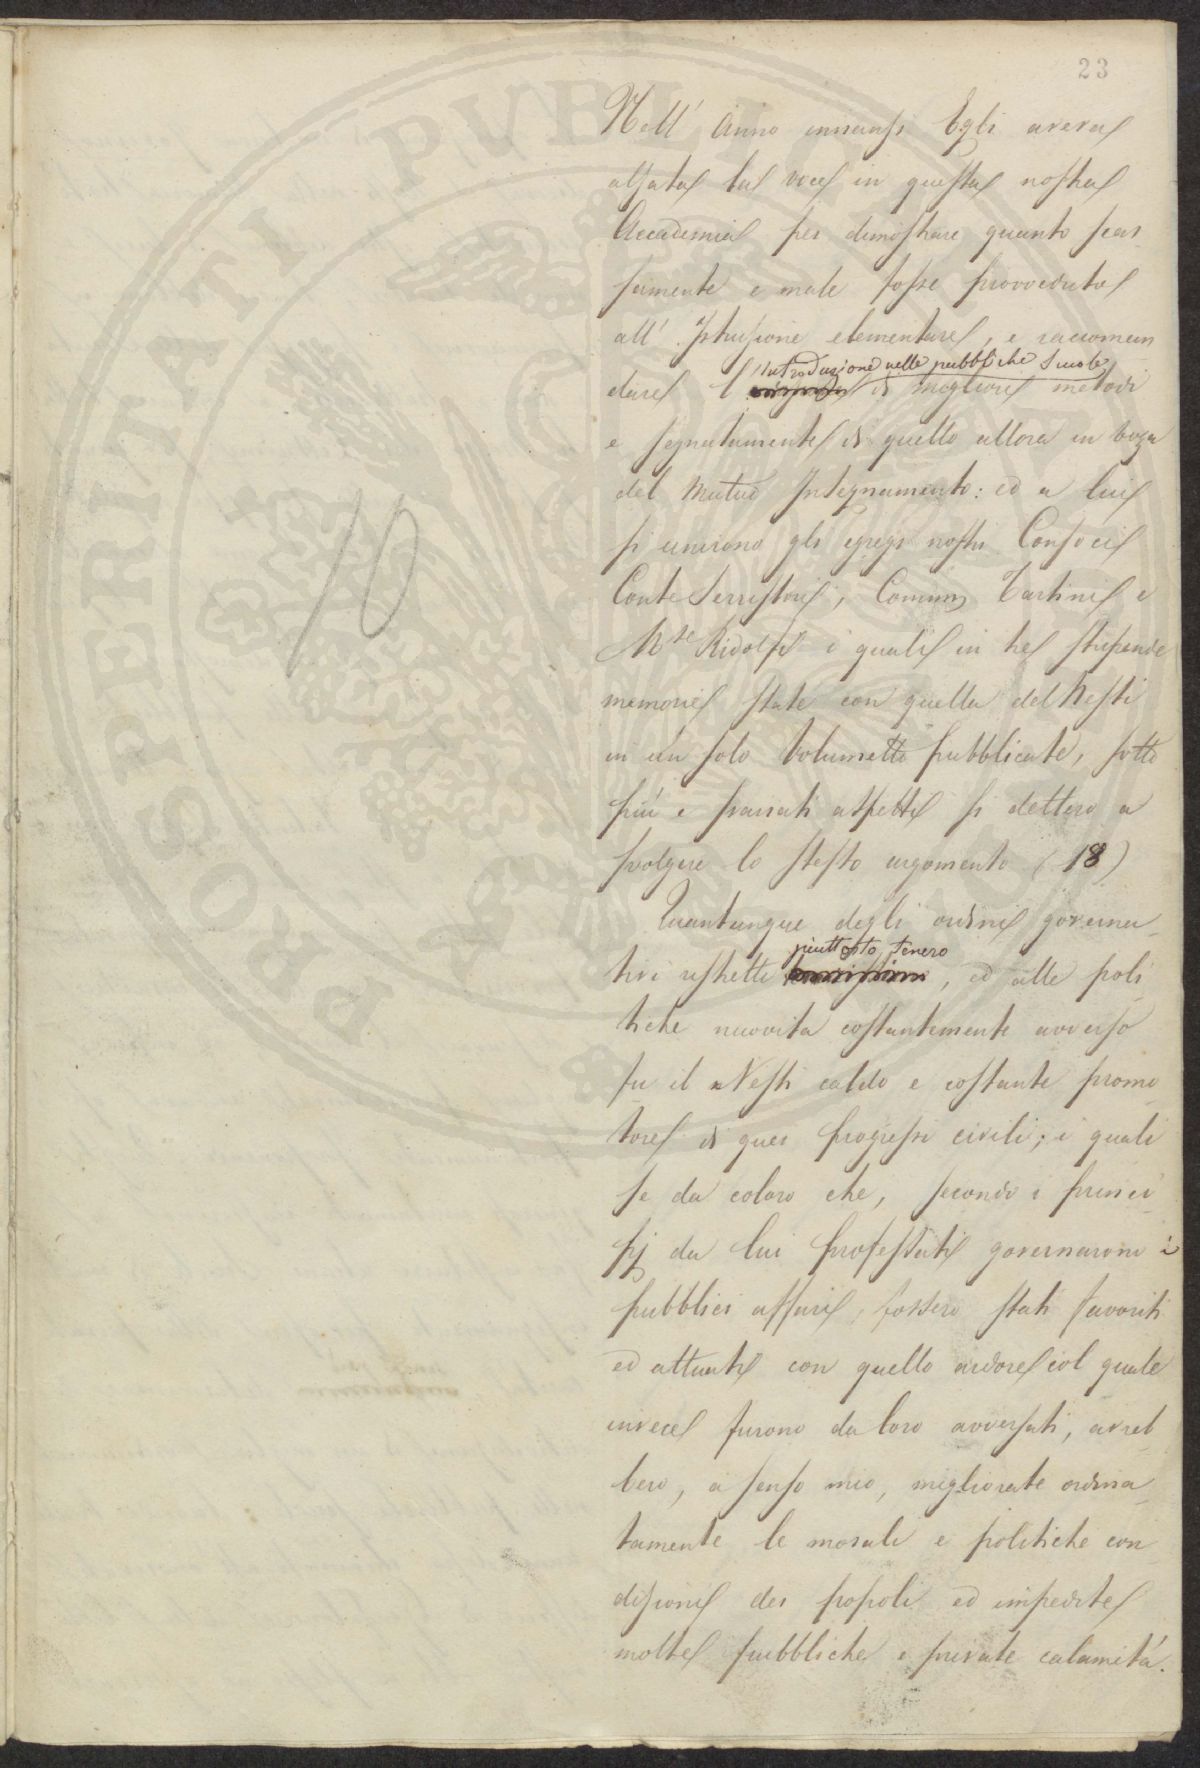 23
Nell' Anno innansi Egli aveva
alsata la voce in questa nostra
Accademia per dimostrare quanto scar
samente e male fosse provveduto
all' Istrusione elementare, e raccoman
introduzione nelle pubbliche Scuole
dare l' di migliori metodi
e segnatamente di quello allora in voga
del Mutuo Insegnamento: ed a lui
si unirono gli egregi nostri Consocii
Conte Serristori, Comm Tartini e
Mse Ridolfi i quali in tre stupende
memorie state con quella del Nesti
in un solo Volumetto pubblicate, sotto
più e svariati aspetti si dettero a
svolgere lo stesso argomento (18)
Quantunque degli ordini governa
piuttosto tenero
tivi ristretti , ed alle poli
tiche nuovita costantemente avverso
fu il Nesti caldo e costante promo
tore di quei progressi civili; i quali
se da coloro che, secondo i princi
pj da lui professati governarono i
pubblici affari, fossero stati favoriti
ed attuati con quello ardore col quale
invece furono da loro avversati, avreb
bero, a senso mio, migliorate ordina
tamente le morali e politiche con
disioni dei popoli ed impedite
molte pubbliche e private calamità.
10
PROSPERITATI PVBLICAE